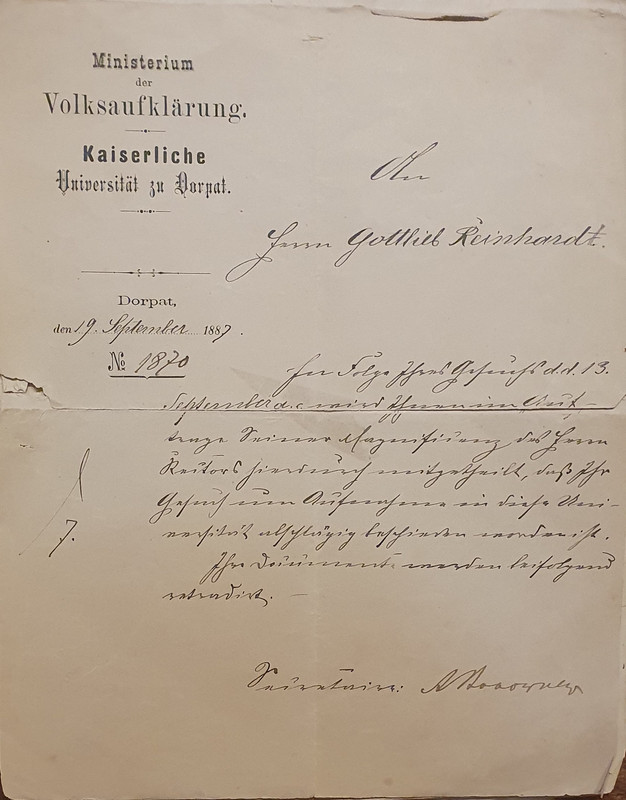 Ministerium
der
Volksaufklärung.
Kaiserliche
Universität zu Dorpat.
An
Herrn Gottlieb Reinhardt.
Dorpat,
den 19. September 1887.
№ 1870
In Folge Ihres Gesuchs d.d. 13.
September a.c. wird Ihnen im Auf-
trage Seiner Magnificenz des Herrn
Rectors hierdurch mitgetheilt, daß Ihr
Gesuch um Aufnahme in diese Uni-
versität abschlägig beschieden worden ist.
7.
Ihre Documente werden beifolgend
retradirt.
Secretaire: